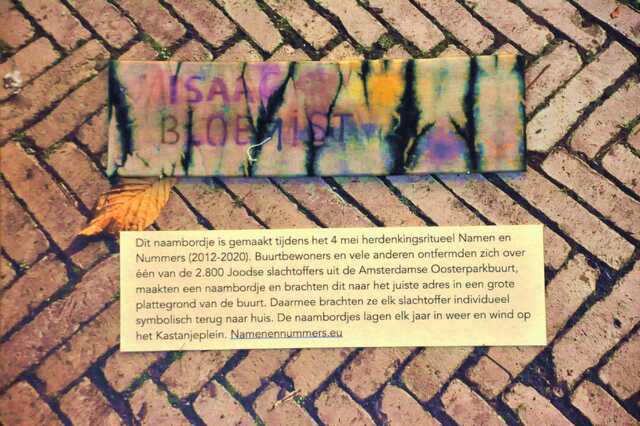 ISAAC
BLOEMIST
Dit naambordje is gemaakt tijdens het 4 mei herdenkingsritueel Namen en
Nummers (2012-2020). Buurtbewoners en vele anderen ontfermden zich over
één van de 2.800 Joodse slachtoffers uit de Amsterdamse Oosterparkbuurt,
maakten een naambordje en brachten dit naar het juiste adres in een grote
plattegrond van de buurt. Daarmee brachten ze elk slachtoffer individueel
symbolisch terug naar huis. De naambordjes lagen elk jaar in weer en wind op
het Kastanjeplein. Namenennummers.eu